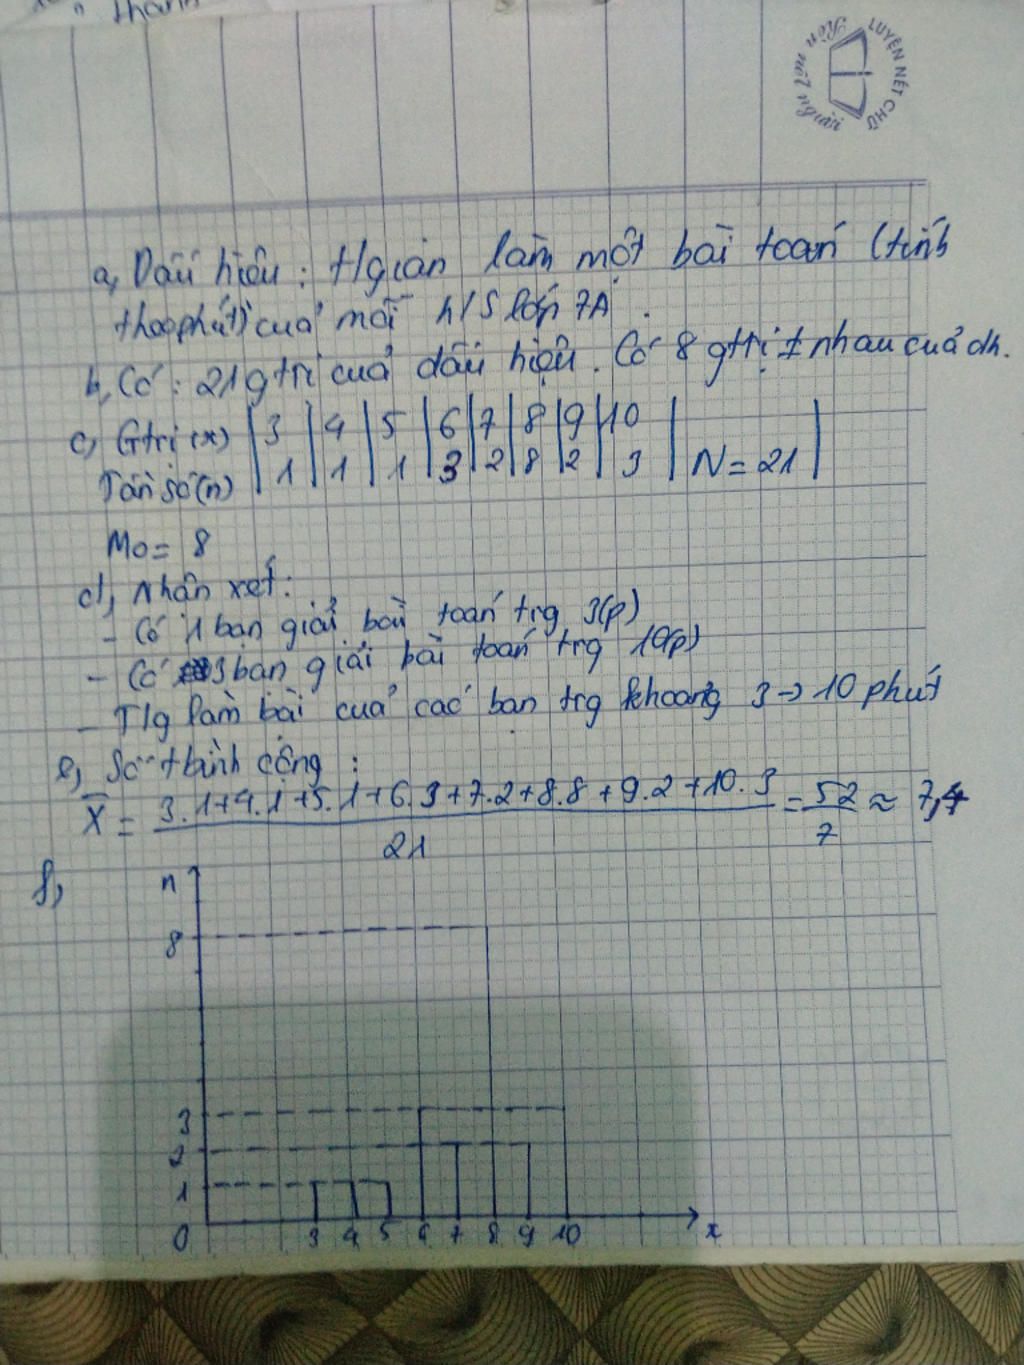 thành
LUYỆN NÉT CHỮ
Rèn nết người
a, Dấu hiệu : t/gian làm một bài toán (tính
theo phút) của mỗi h/S lớp 7A .
b, Có : 21 gtrị của dấu hiệu . Có 8 gtrị ≠ nhau của dh.
c, Gtrị (x) | 3 | 4 | 5 | 6 | 7 | 8 | 9 | 10 |
Tần số (n) | 1 | 1 | 1 | 3 | 2 | 8 | 2 | 3 | N = 21 |
Mo = 8
d, Nhận xét :
- Có 1 bạn giải bài toán trg 3(p)
- Có 3 bạn giải bài toán trg 10(p)
- T/g làm bài của các bạn trg khoảng 3 → 10 phút
e, Số tbình cộng :
X̄ = 3.1+4.1+5.1+6.3+7.2+8.8+9.2+10.3 = 52 ≈ 7,4
21 7
f,
n
8
3
2
1
0 3 4 5 6 7 8 9 10 x